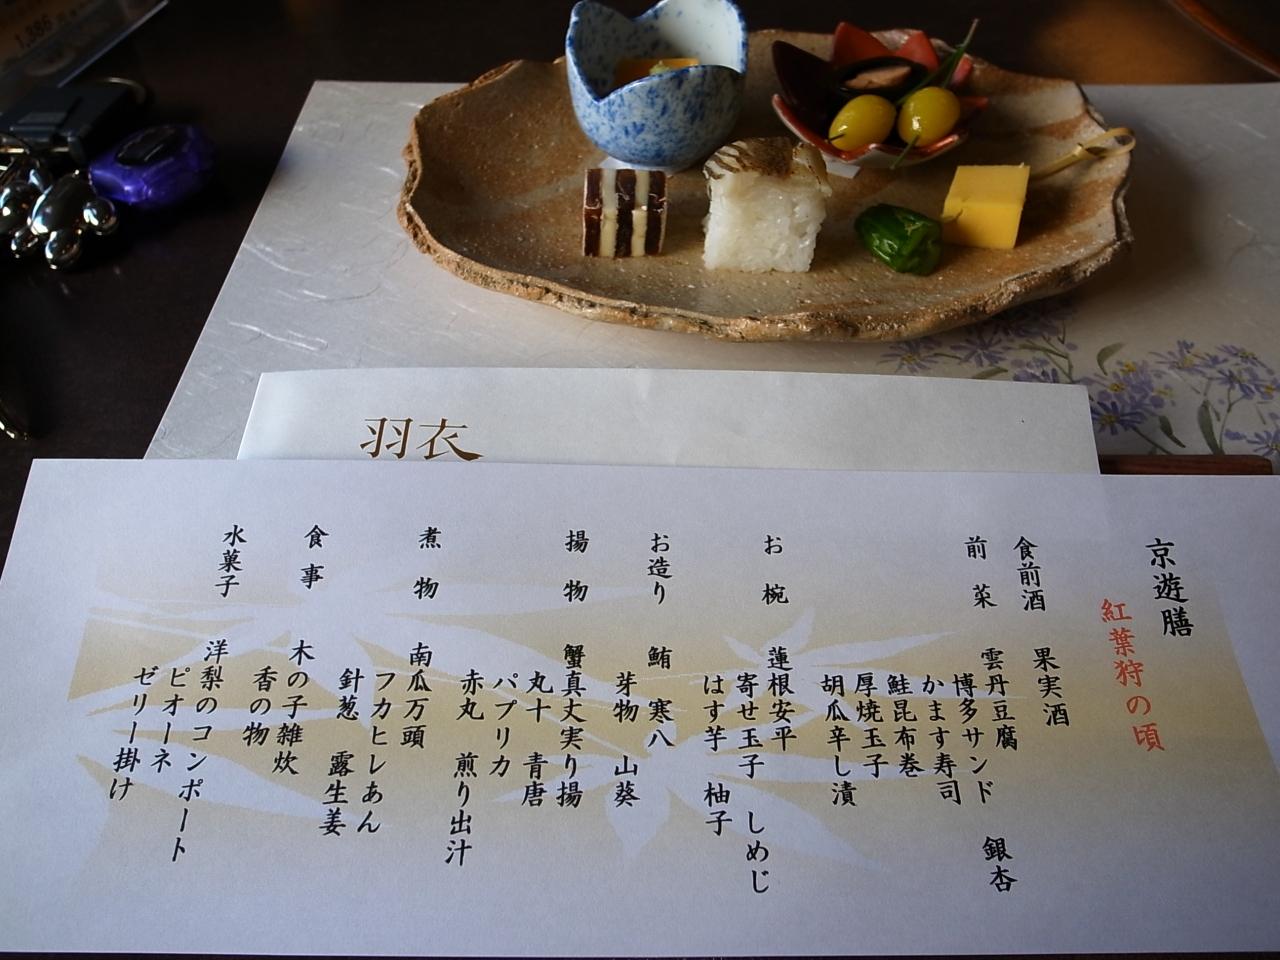 1,386
羽衣
京遊膳
紅葉狩の頃
食前酒 果実酒
前菜 雲丹豆腐 銀杏
博多サンド
かます寿司
鮭昆布巻
厚焼玉子
胡瓜辛し漬
お椀 蓮根安平
寄せ玉子 しめじ
はす芋 柚子
お造り 鮪 寒八
芽物 山葵
揚物 蟹真丈実り揚
丸十 青唐
パプリカ
赤丸 煎り出汁
煮物 南瓜万頭
フカヒレあん
針葱 露生姜
食事 木の子雑炊
香の物
水菓子 洋梨のコンポート
ピオーネ
ゼリー掛け